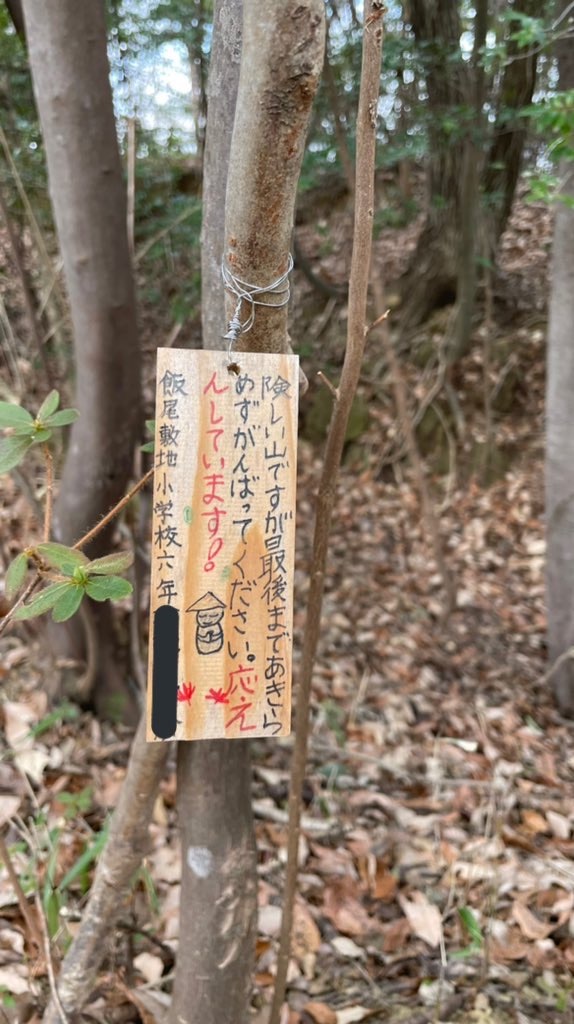 険しい山ですが最後まであきら
めずがんばってください。応え
んしています!
飯尾敷地小学校六年